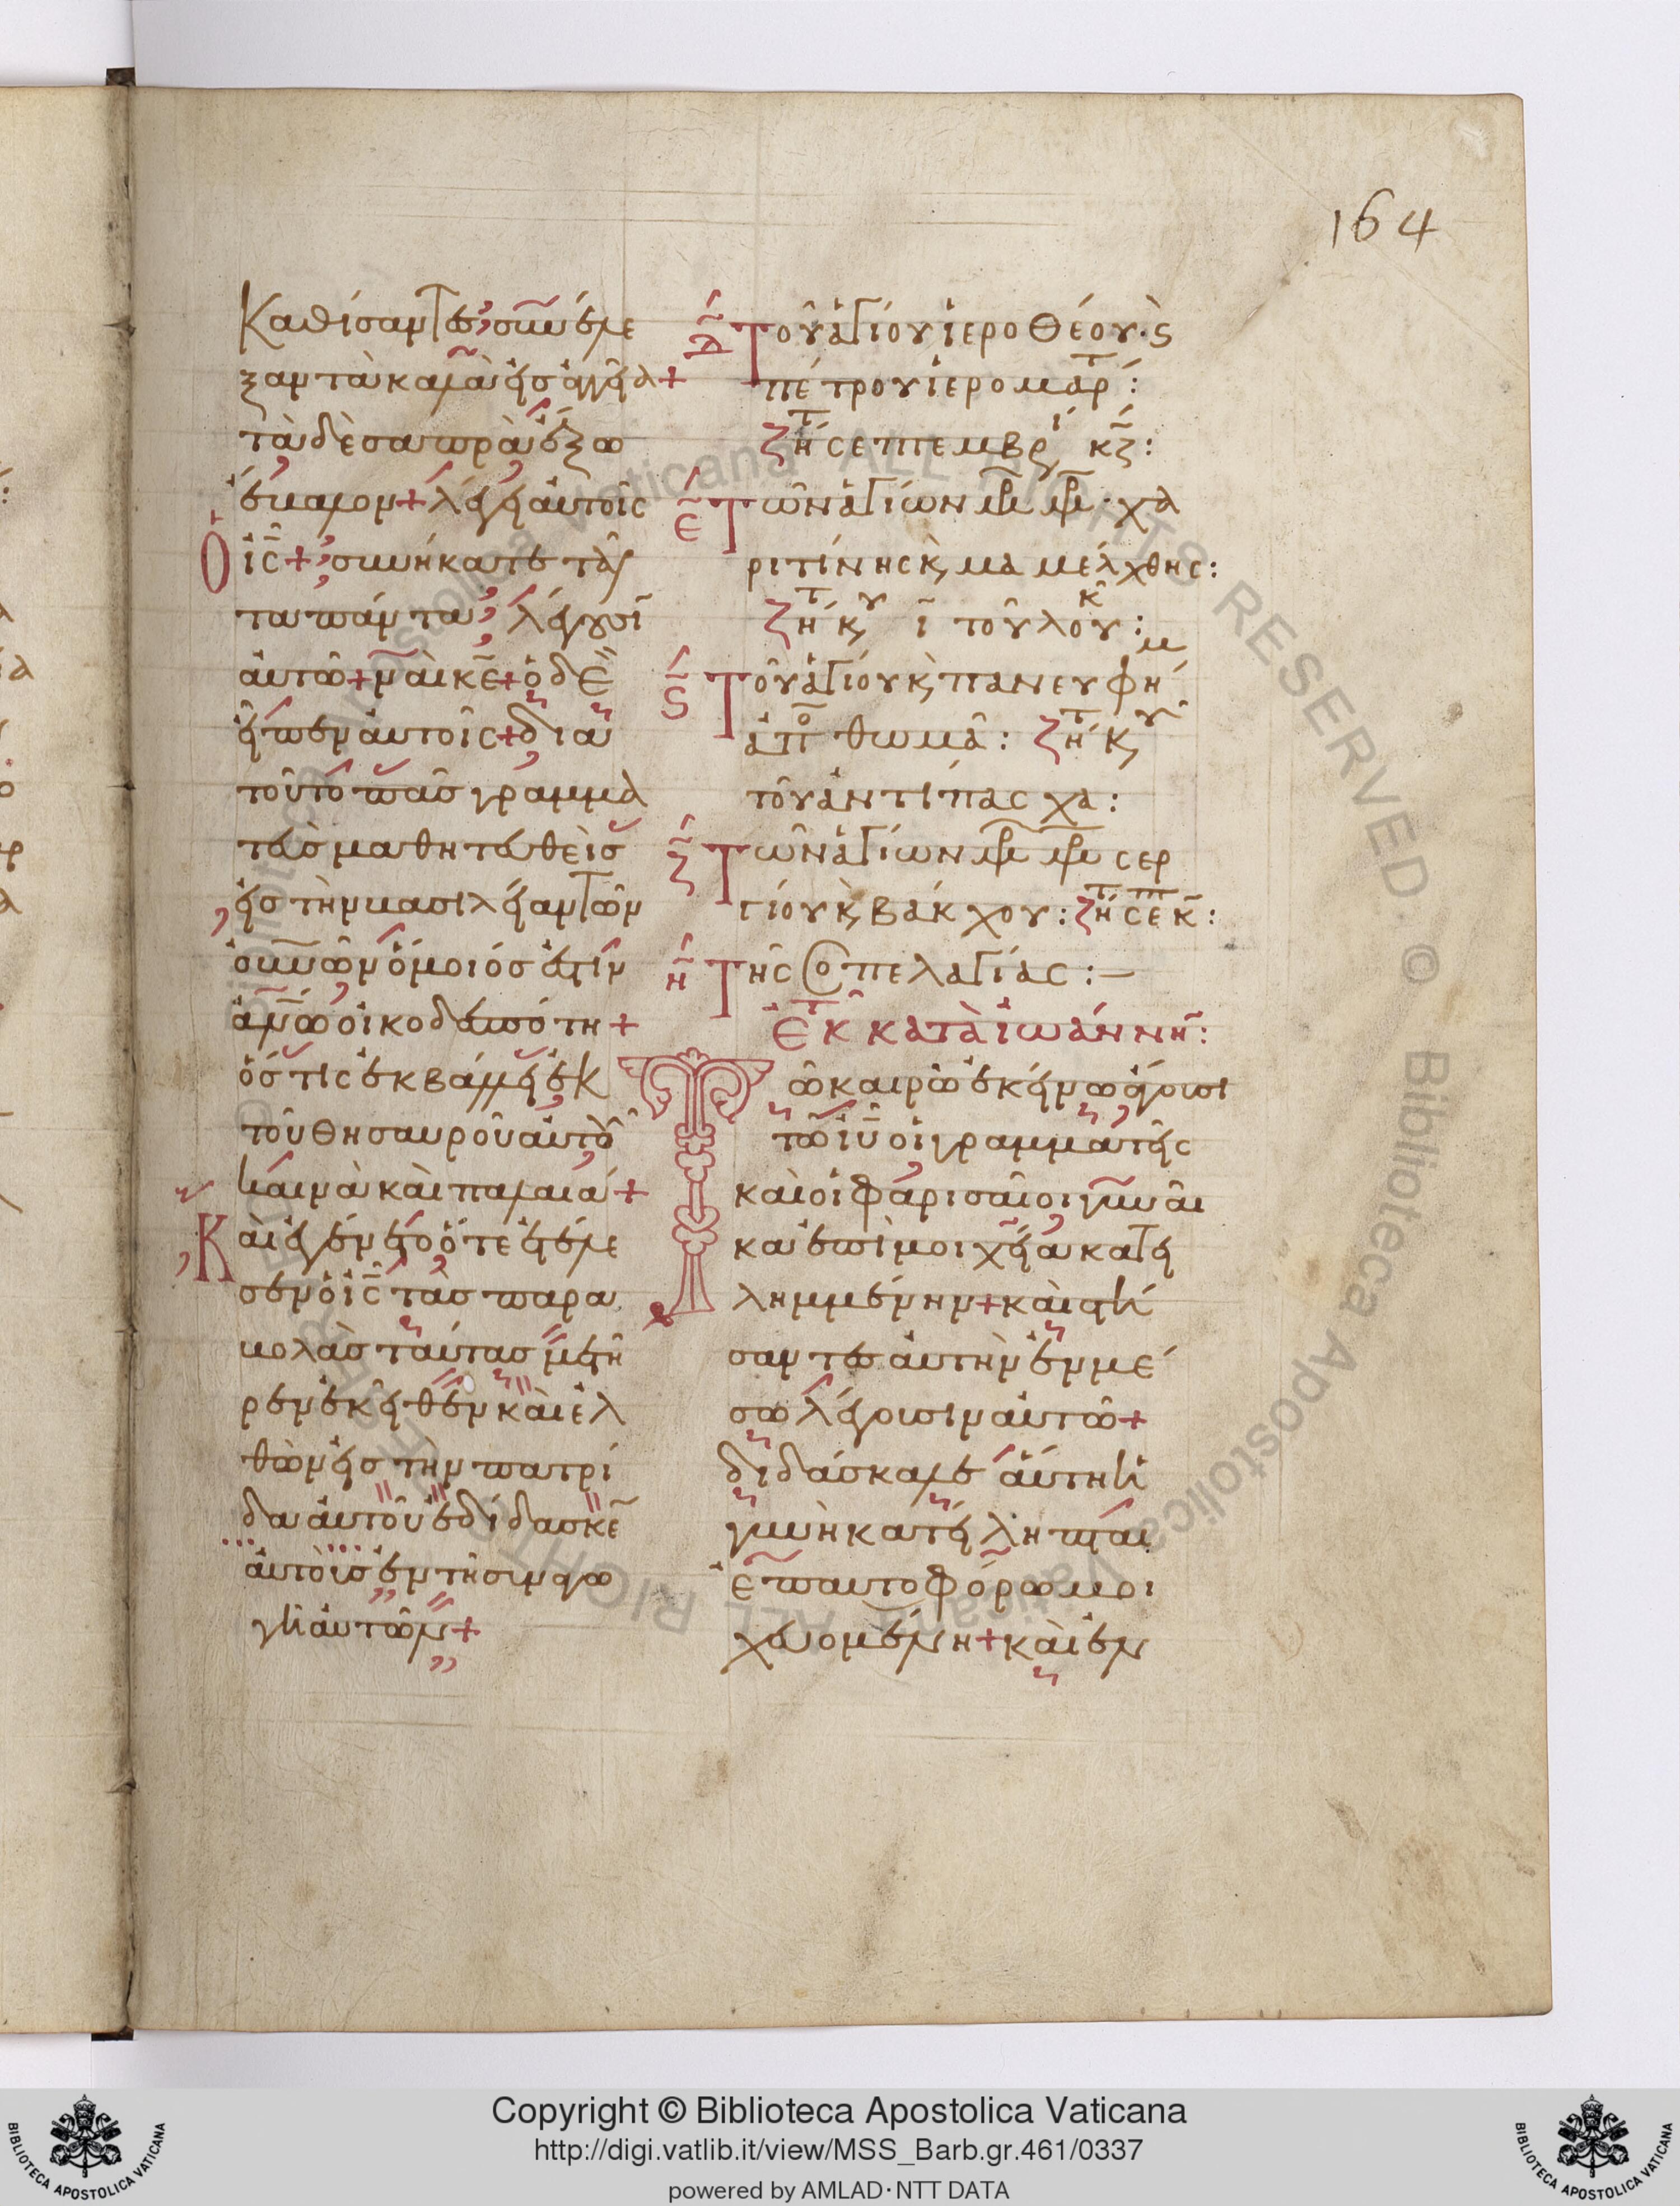 164
Καθίσαντες, συνέλε
ξαν τὰ καλὰ εἰς ἀγγεῖα+
τὰ δὲ σαπρὰ ἔξω
ἔβαλον+ λέγει αὐτοῖς
Ὁ ι̅ς̅+ συνήκατε ταῦ
τα πάντα; λέγουσῖ
αὐτῶ+ ναὶ κ̅ε̅+ ὁ δὲ
εἶπεν αὐτοῖς+ διὰ
τοῦτο πᾶσ γραμμα
τεὺσ μαθητευθεὶσ
εἰσ τὴν βασιλείαν τῶν
οὐνῶν ὅμοιόσ ἐστὶν
ἀνω οἰκοδεσπότη+
ὅστις ἐκβάλλει ἐκ
τοῦ θησαυροῦ αὐτοῦ
καινὰ καὶ παλαιά+
Καὶ ἐγένετο ὅτε ἐτέλε
σεν ὁ ι̅ς̅ τὰσ παρα
βολὰσ ταύτασ μετῆ
ρεν ἐκεῖθεν καὶ ἐλ
θὼν εἰσ τὴν πατρί
δα αὐτοῦ ἐδίδασκε̅
αὐτοὺσ ἐν τῆ συναγω
γῆ αὐτῶν+
δ̅ Τοῦ ἁγίου ἱεροθέου. ς
πέτρου ἱερομαρτ:
ζητ σεπτεμβρί κζ:
ε̅ Τῶν ἁγίων μρ μρ. χα
ριτίνης κ, μαμέλχθης:
ζητ κυ ι̅ τοῦ λουκ:
ς̅ Τοῦ ἁγίου κ, πανευφήμ
ἀπο θωμᾶ: ζητ κυ
τοῦ ἀντίπασχα:
ζ̅ Τῶν ἁγίων μρ μρ σερ
γίου κ, βάκχου: ζητ σεπ κ:
η̅ Τῆς ὁ πελαγίας:—
Ἐκ τ κατὰ ἰωάννην:
Τῶ καιρῶ ἐκείνω ἄγουσι
τῶ ι̅υ̅ οἱ γραμματεῖς
καὶ οἱ φαρισαῖοι γυναῖ
κα ἐπὶ μοιχεία κατει
λημμένην+ καὶ στή
σαντεσ αὐτὴν ἐν μέ
σω λέγουσιν αὐτῶ+
διδάσκαλε αὕτη ἡ
γυνὴ κατείληπται
ἐπαυτοφόρω μοι
χευομένη+ καὶ ἐν
Copyright © Biblioteca Apostolica Vaticana
http://digi.vatlib.it/view/MSS_Barb.gr.461/0337
powered by AMLAD·NTT DATA
BIBLIOTECA APOSTOLICA VATICANA
BIBLIOTECA APOSTOLICA VATICANA